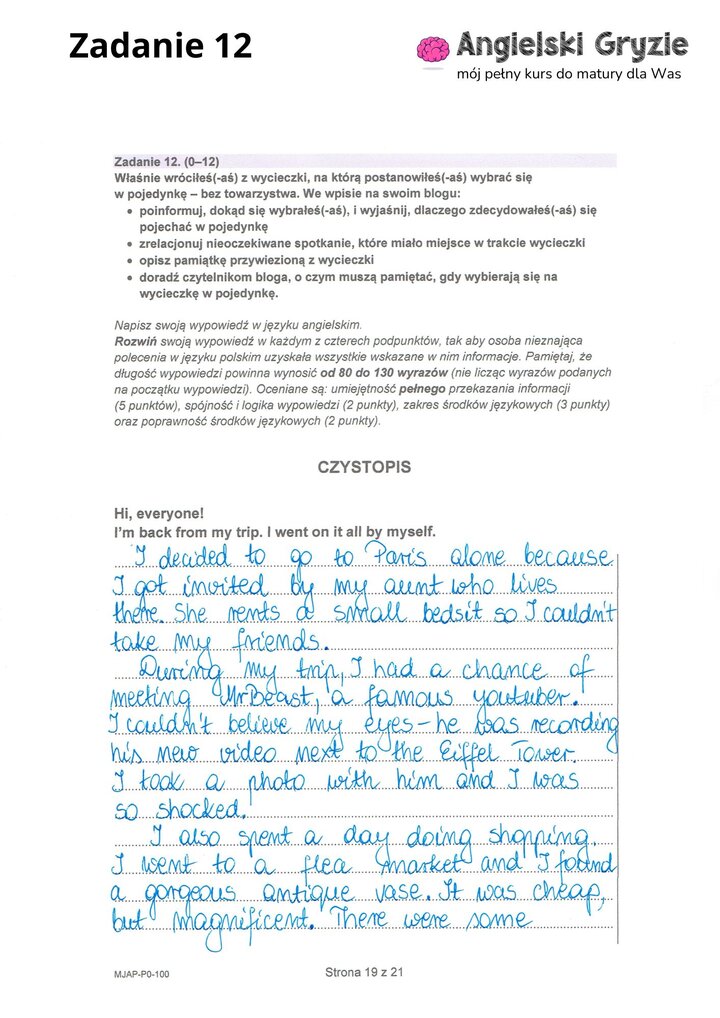 Zadanie 12
Angielski Gryzie
mój pełny kurs do matury dla Was
Zadanie 12. (0–12)
Właśnie wróciłeś(-aś) z wycieczki, na którą postanowiłeś(-aś) wybrać się
w pojedynkę – bez towarzystwa. We wpisie na swoim blogu:
• poinformuj, dokąd się wybrałeś(-aś), i wyjaśnij, dlaczego zdecydowałeś(-aś) się
pojechać w pojedynkę
• zrelacjonuj nieoczekiwane spotkanie, które miało miejsce w trakcie wycieczki
• opisz pamiątkę przywiezioną z wycieczki
• doradź czytelnikom bloga, o czym muszą pamiętać, gdy wybierają się na
wycieczkę w pojedynkę.
Napisz swoją wypowiedź w języku angielskim.
Rozwiń swoją wypowiedź w każdym z czterech podpunktów, tak aby osoba nieznająca
polecenia w języku polskim uzyskała wszystkie wskazane w nim informacje. Pamiętaj, że
długość wypowiedzi powinna wynosić od 80 do 130 wyrazów (nie licząc wyrazów podanych
na początku wypowiedzi). Oceniane są: umiejętność pełnego przekazania informacji
(5 punktów), spójność i logika wypowiedzi (2 punkty), zakres środków językowych (3 punkty)
oraz poprawność środków językowych (2 punkty).
CZYSTOPIS
Hi, everyone!
I'm back from my trip. I went on it all by myself.
I decided to go to Paris alone because
I got invited by my aunt who lives
there. She rents a small bedsit so I couldn't
take my friends.
During my trip, I had a chance of
meeting MrBeast, a famous youtuber.
I couldn't believe my eyes – he was recording
his new video next to the Eiffel Tower.
I took a photo with him and I was
so shocked.
I also spent a day doing shopping.
I went to a flea market and I found
a gorgeous antique vase. It was cheap,
but magnificent. There were some
MJAP-P0-100
Strona 19 z 21